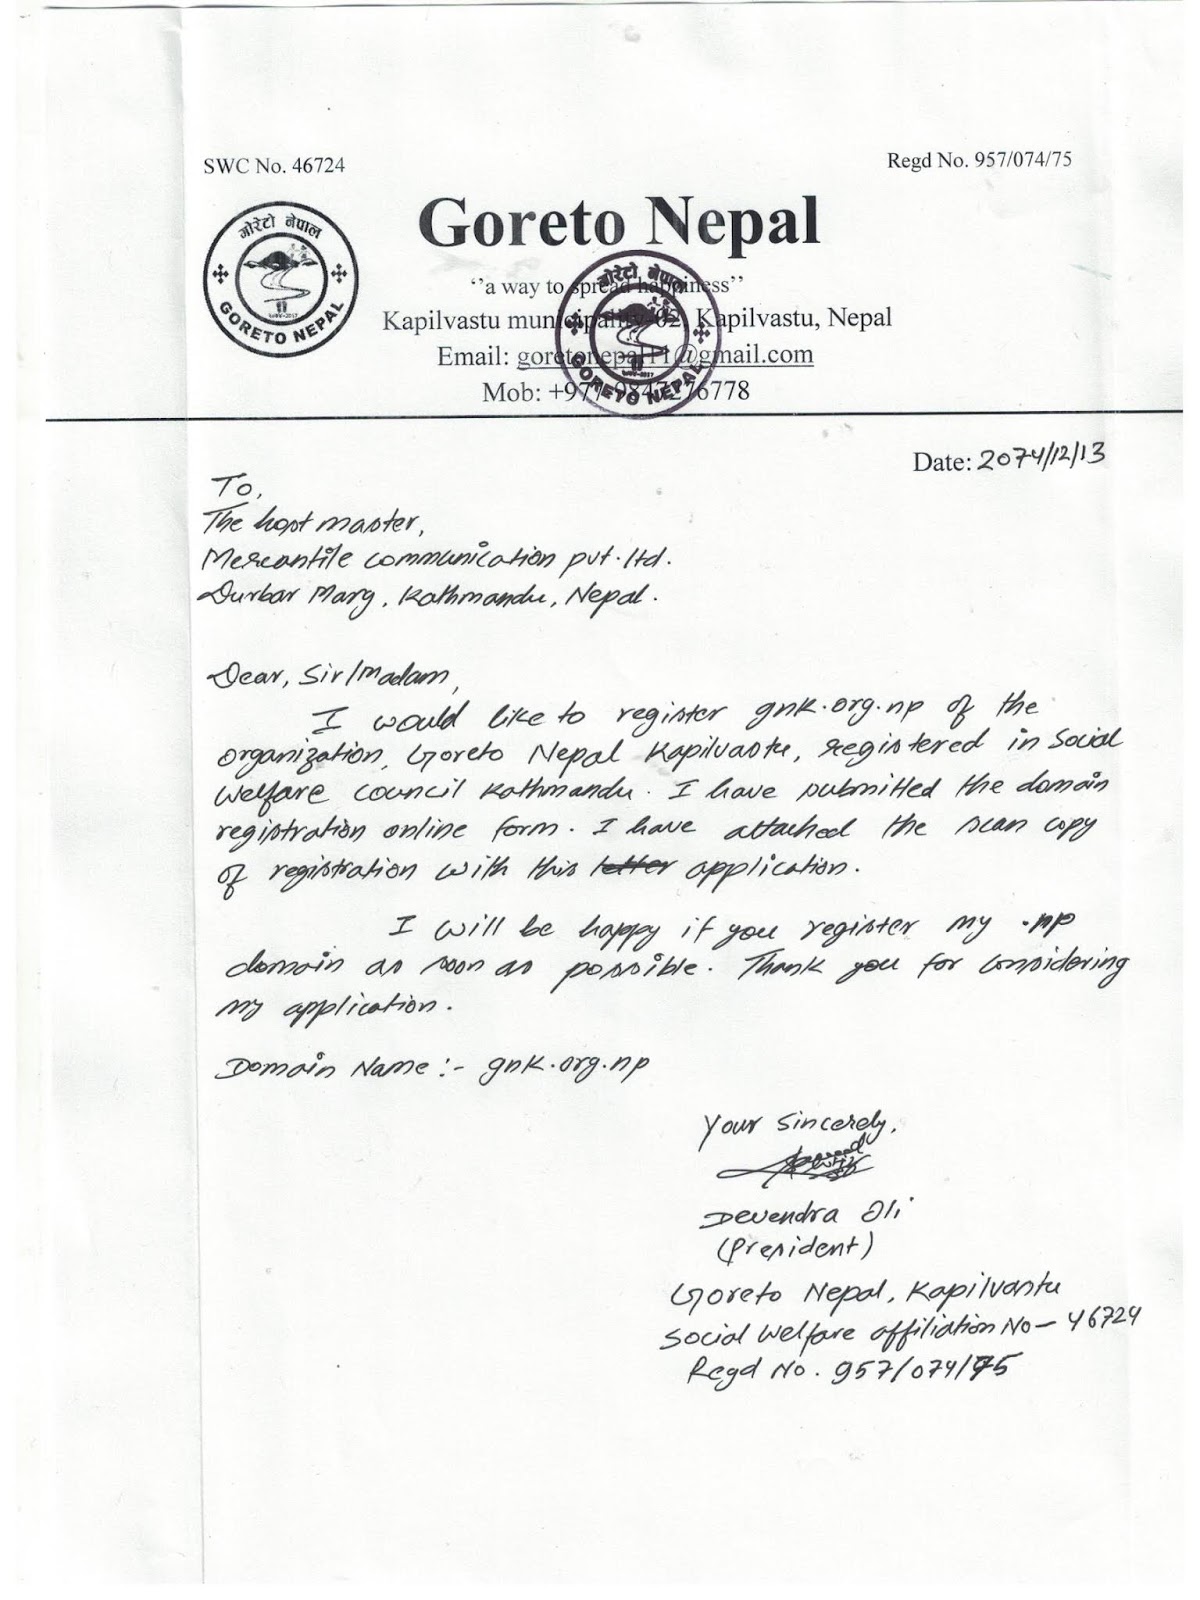 SWC No. 46724
Regd No. 957/074/75
गोरेटो नेपाल
GORETO NEPAL
Goreto Nepal
‘’a way to spread happiness’’
Kapilvastu municipality-02, Kapilvastu, Nepal
Email: goretonepal11@gmail.com
Mob: +977-9847276778
गोरेटो नेपाल
GORETO NEPAL
Date: 2074/12/13
To,
The host master,
Mercantile communication pvt. ltd.
Durbar Marg, Kathmandu, Nepal.
Dear, Sir/Madam,
I would like to register gnk.org.np of the
organization, Goreto Nepal Kapilvastu, registered in Social
Welfare council Kathmandu. I have submitted the domain
registration online form. I have attached the scan copy
of registration with this letter application.
I will be happy if you register my .np
domain as soon as possible. Thank you for considering
my application.
Domain Name :- gnk.org.np
Your sincerely,
Devendra Oli
(President)
Goreto Nepal, Kapilvastu
Social Welfare affiliation No- 46724
Regd No. 957/074/75